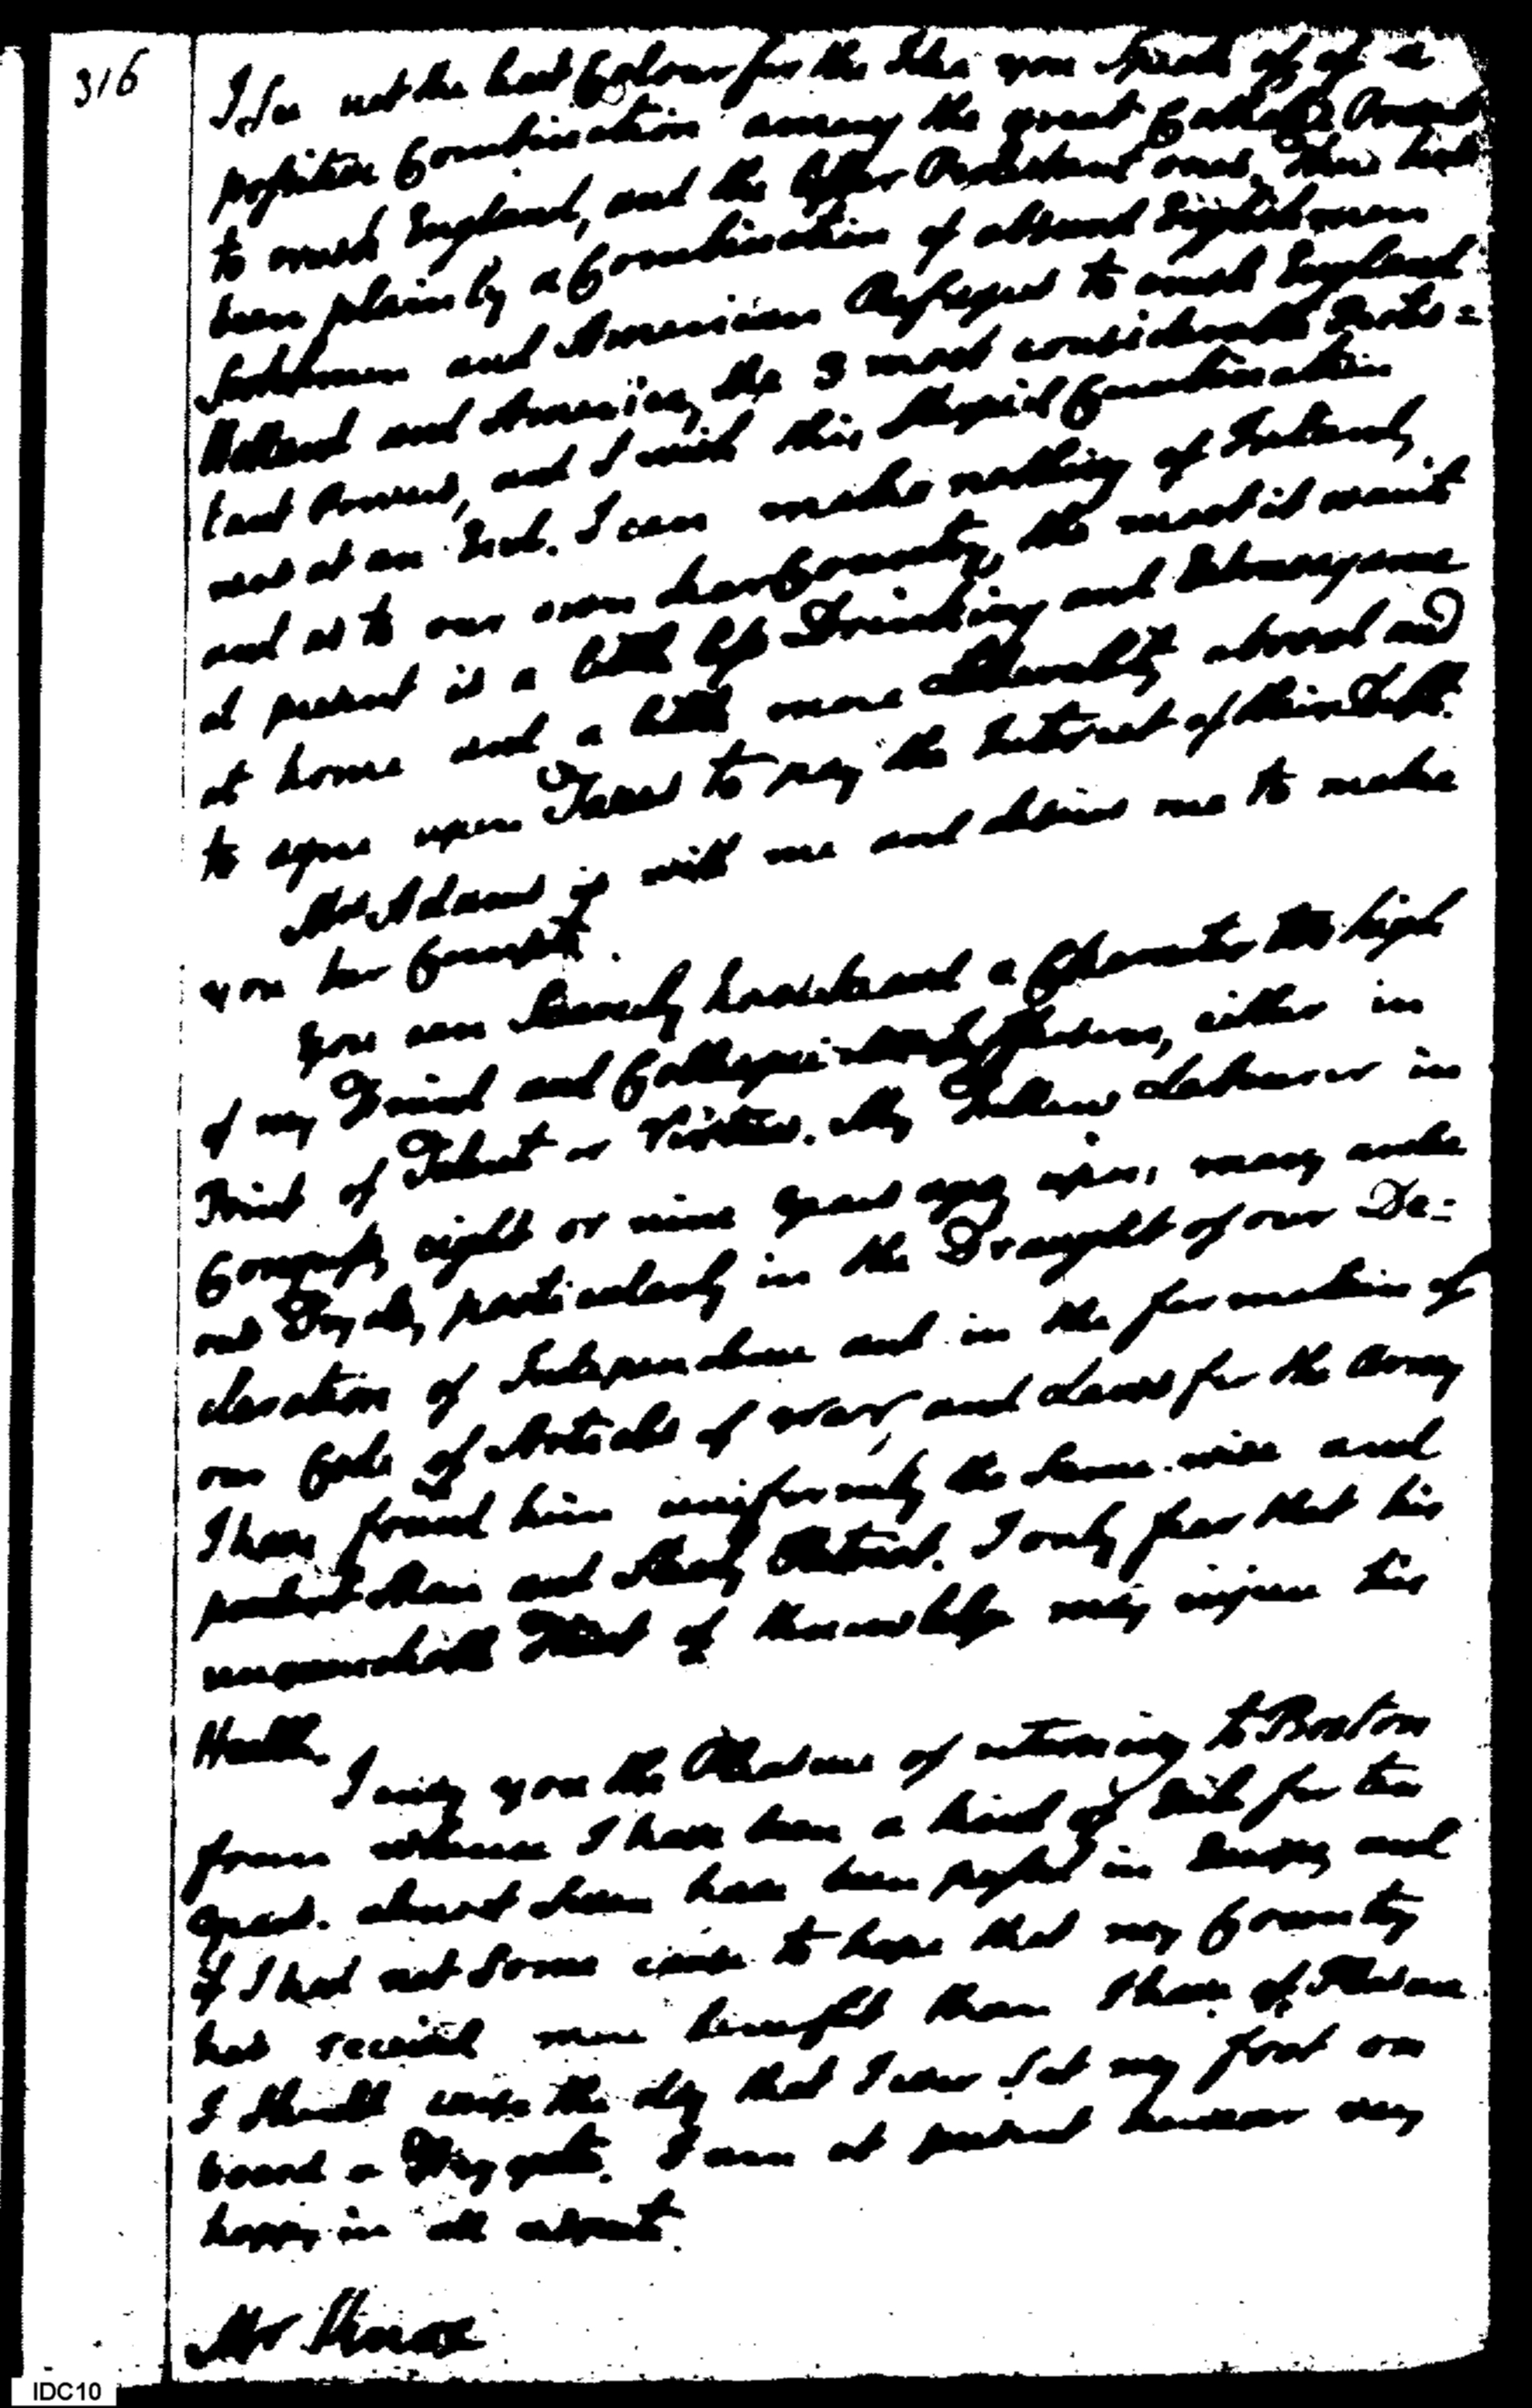 316
I See not the least Colour for the Idea you Speak of, of a
positive Combination among the great Catholic Powers
to crush England, and the lesser Protestant ones. There has
been plainly a Combination of absurd Englishmen
Scotchmen and American Refugees to crush England
Holland and America, the 3 most considerable Protes=
tant Powers, and I wish this stupid Combination
was at an End. I can make nothing of Ireland,
and as to our own dear Country, the most it wants
at present is a little less Drinking and Extravagance
at home and a little more abroad and
to agree upon Taxes to pay the Interest of their Debt.
Mrs Adams is with me and desires me to make
you her Compts.
You can Scarcely have heard a Character too high
of my Friend and Colleague Mr Jefferson, either in
Point of Talents or Virtues. My Fellow Labourer in
Congress, eight or nine years ago, upon many arduous
Tryals, particularly in the Draught of our De=
claration of Independence and in the formation of
our Code of Articles of War, and Laws for the Army
I have found him uniformly the Same wise and
prudent Man and Steady Patriot. I only fear that his
unquenchable Thirst of knowledge may injure his
Health.
I envy you the Pleasure of returning to Boston
from whence I have been a kind of Exile for ten
years. almost Seven have been passed in Europe, and
if I had not Some cause to hope that my Country
had received more benefit than I have of Pleasure
I should curse the day that I ever Set my foot on
board a Fryggate. I am at present however very
happy in all respects.
Mr Knox
IDC10